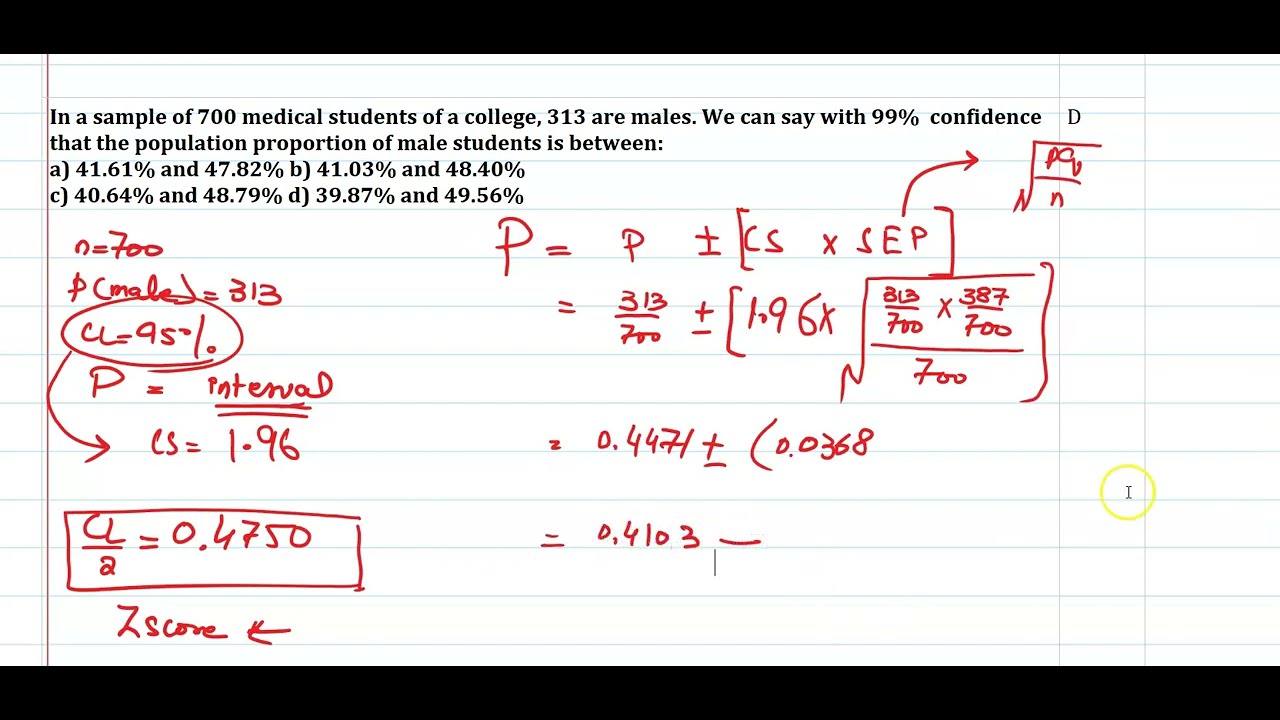 In a sample of 700 medical students of a college, 313 are males. We can say with 99% confidence D
that the population proportion of male students is between:
a) 41.61% and 47.82% b) 41.03% and 48.40%
c) 40.64% and 48.79% d) 39.87% and 49.56%
√(pq/n)
n=700
p(male)=313
CL=95%.
P = interval
CS= 1.96
CL/2 = 0.4750
Zscore ←
P = P ± [CS × SEP]
= 313/700 ± [1.96× √((313/700 × 387/700)/700)]
= 0.4471 ± (0.0368
= 0.4103 —